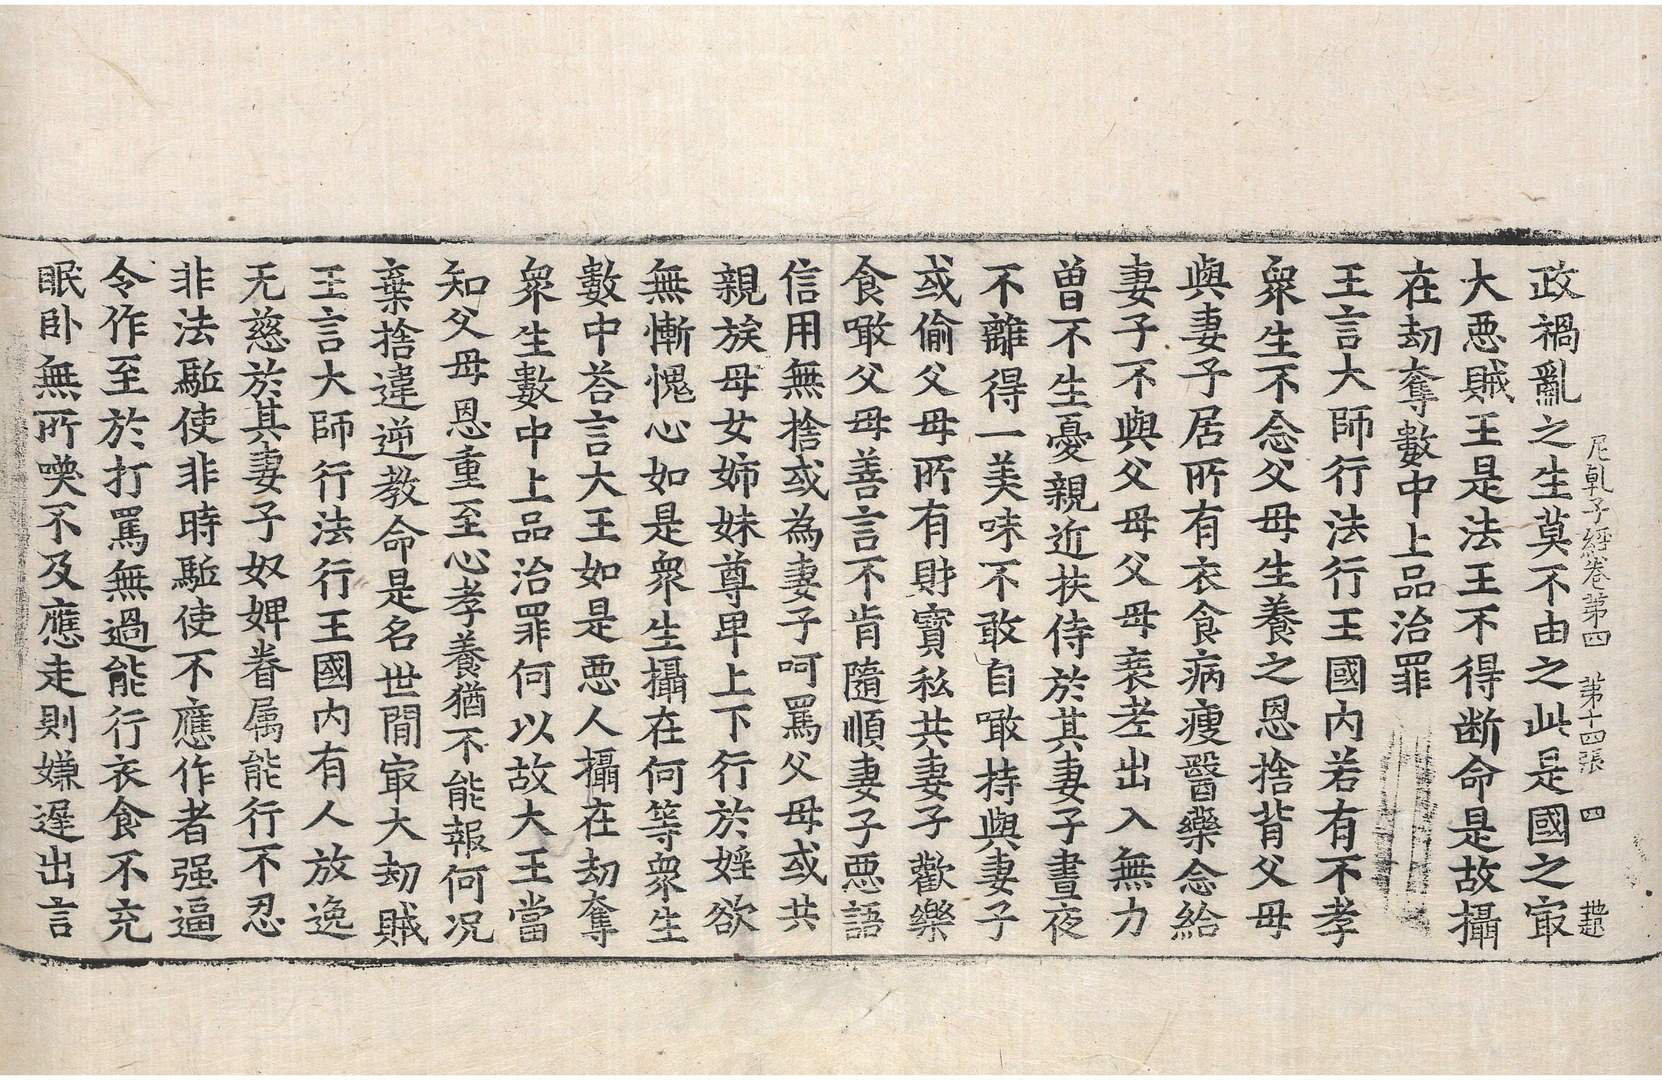 尼乹子經卷第四 第十四張 四 趙
政禍亂之生莫不由之此是國之㝡
大惡賊王是法王不得断命是故攝
在劫奪數中上品治罪
王言大師行法行王國內若有不孝
衆生不念父母生養之恩捨背父母
與妻子居所有衣食病瘦醫藥念給
妻子不與父母父母衰老出入無力
曽不生憂親近扶侍於其妻子晝夜
不離得一美味不敢自噉持與妻子
或偷父母所有財寶私共妻子歡樂
食噉父母善言不肯隨順妻子惡語
信用無捨或為妻子呵罵父母或共
親族母女姉妹尊卑上下行於婬欲
無慚愧心如是衆生攝在何等衆生
數中荅言大王如是惡人攝在劫奪
衆生數中上品治罪何以故大王當
知父母恩重至心孝養猶不能報何况
棄捨違逆教命是名世間㝡大劫賊
王言大師行法行王國內有人放逸
无慈於其妻子奴婢眷属能行不忍
非法駈使非時駈使不應作者强逼
令作至於打罵無過能行衣食不充
眠卧無所喚不及應走則嫌遲出言